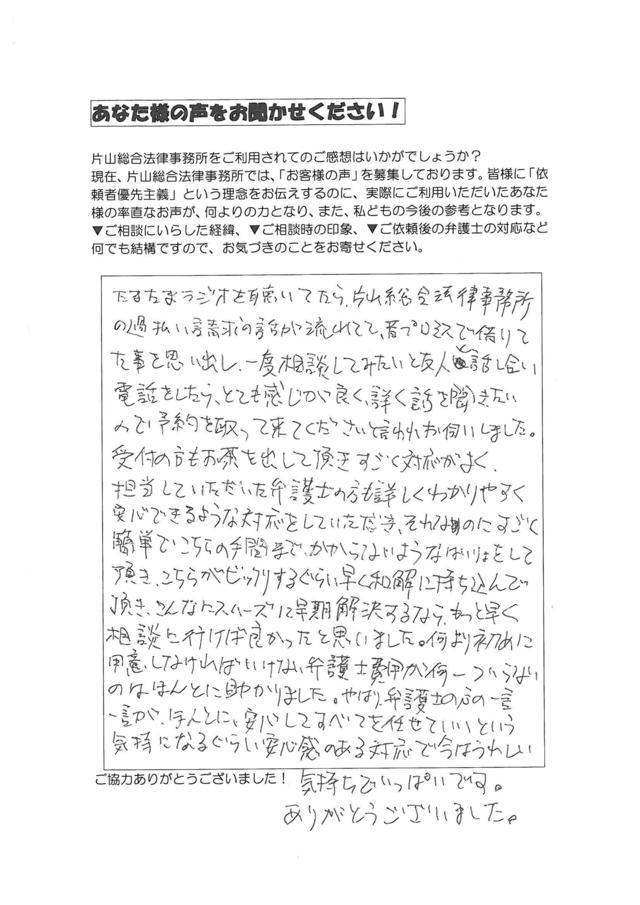 あなた様の声をお聞かせください!
片山総合法律事務所をご利用されてのご感想はいかがでしょうか?
現在、片山総合法律事務所では、「お客様の声」を募集しております。皆様に「依
頼者優先主義」という理念をお伝えするのに、実際にご利用いただいたあなた
様の率直なお声が、何よりの力となり、また、私どもの今後の参考となります。
▼ご相談にいらした経緯、▼ご相談時の印象、▼ご依頼後の弁護士の対応など
何でも結構ですので、お気づきのことをお寄せください。
たまたまラジオを聴いてたら、片山総合法律事務所
の過払い請求の話が流れてて、昔プロミスで借りて
た事を思い出し、一度相談してみたいと友人と話し合い
電話をしたら、とても感じが良く、詳く話を聞きたい
ので予約を取って来てくださいと言われお伺いしました。
受付の方もお茶を出して頂きすごく対応がよく、
担当していただいた弁護士の方も詳しくわかりやすく
安心できるような対応をしていただき、それなのにすごく
簡単でこちらの手間まで、かからないようなはいりょをして
頂き、こちらがビックリするぐらい早く和解に持ち込んで
頂き、こんなにスムーズに早期解決するなら、もっと早く
相談に行けば良かったと思いました。何より初めに
用意しなければいけない弁護士費用が何一ついらない
のはほんとに助かりました。やはり、弁護士の方の一言
一言が、ほんとに、安心してすべてを任せていいという
気持になるぐらい安心感のある対応で今はうれしい
ご協力ありがとうございました!
気持ちでいっぱいです。
ありがとうございました。